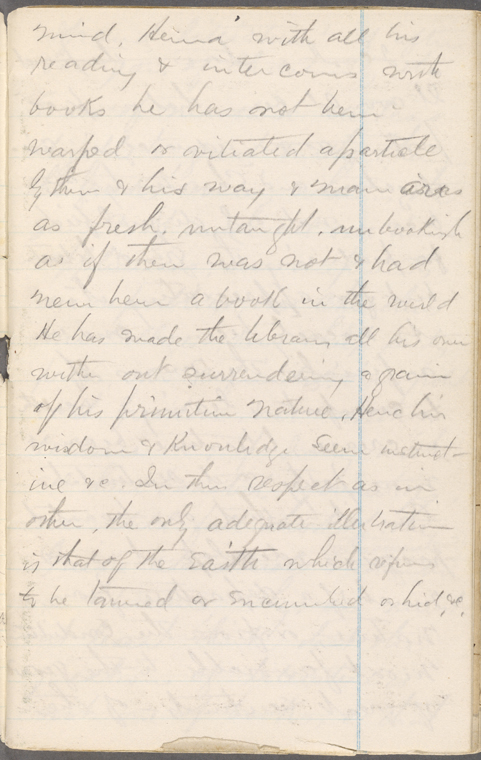 mind. Hence with all his
reading & intercourse with
books he has not been
warped or vitiated a particle
by them & his way & manner are as
as fresh, untaught, unbookish
as if there was not & had
never been a book in the world
He has made the library all his own
with out surrendering a grain
of his primitive nature. Hence his
wisdom & knowledge seem instinct-
ive &c. In this respect as in
other, the only adequate illustration
is that of the Earth which refuses
to be tamed or encumbered or hid, &c.